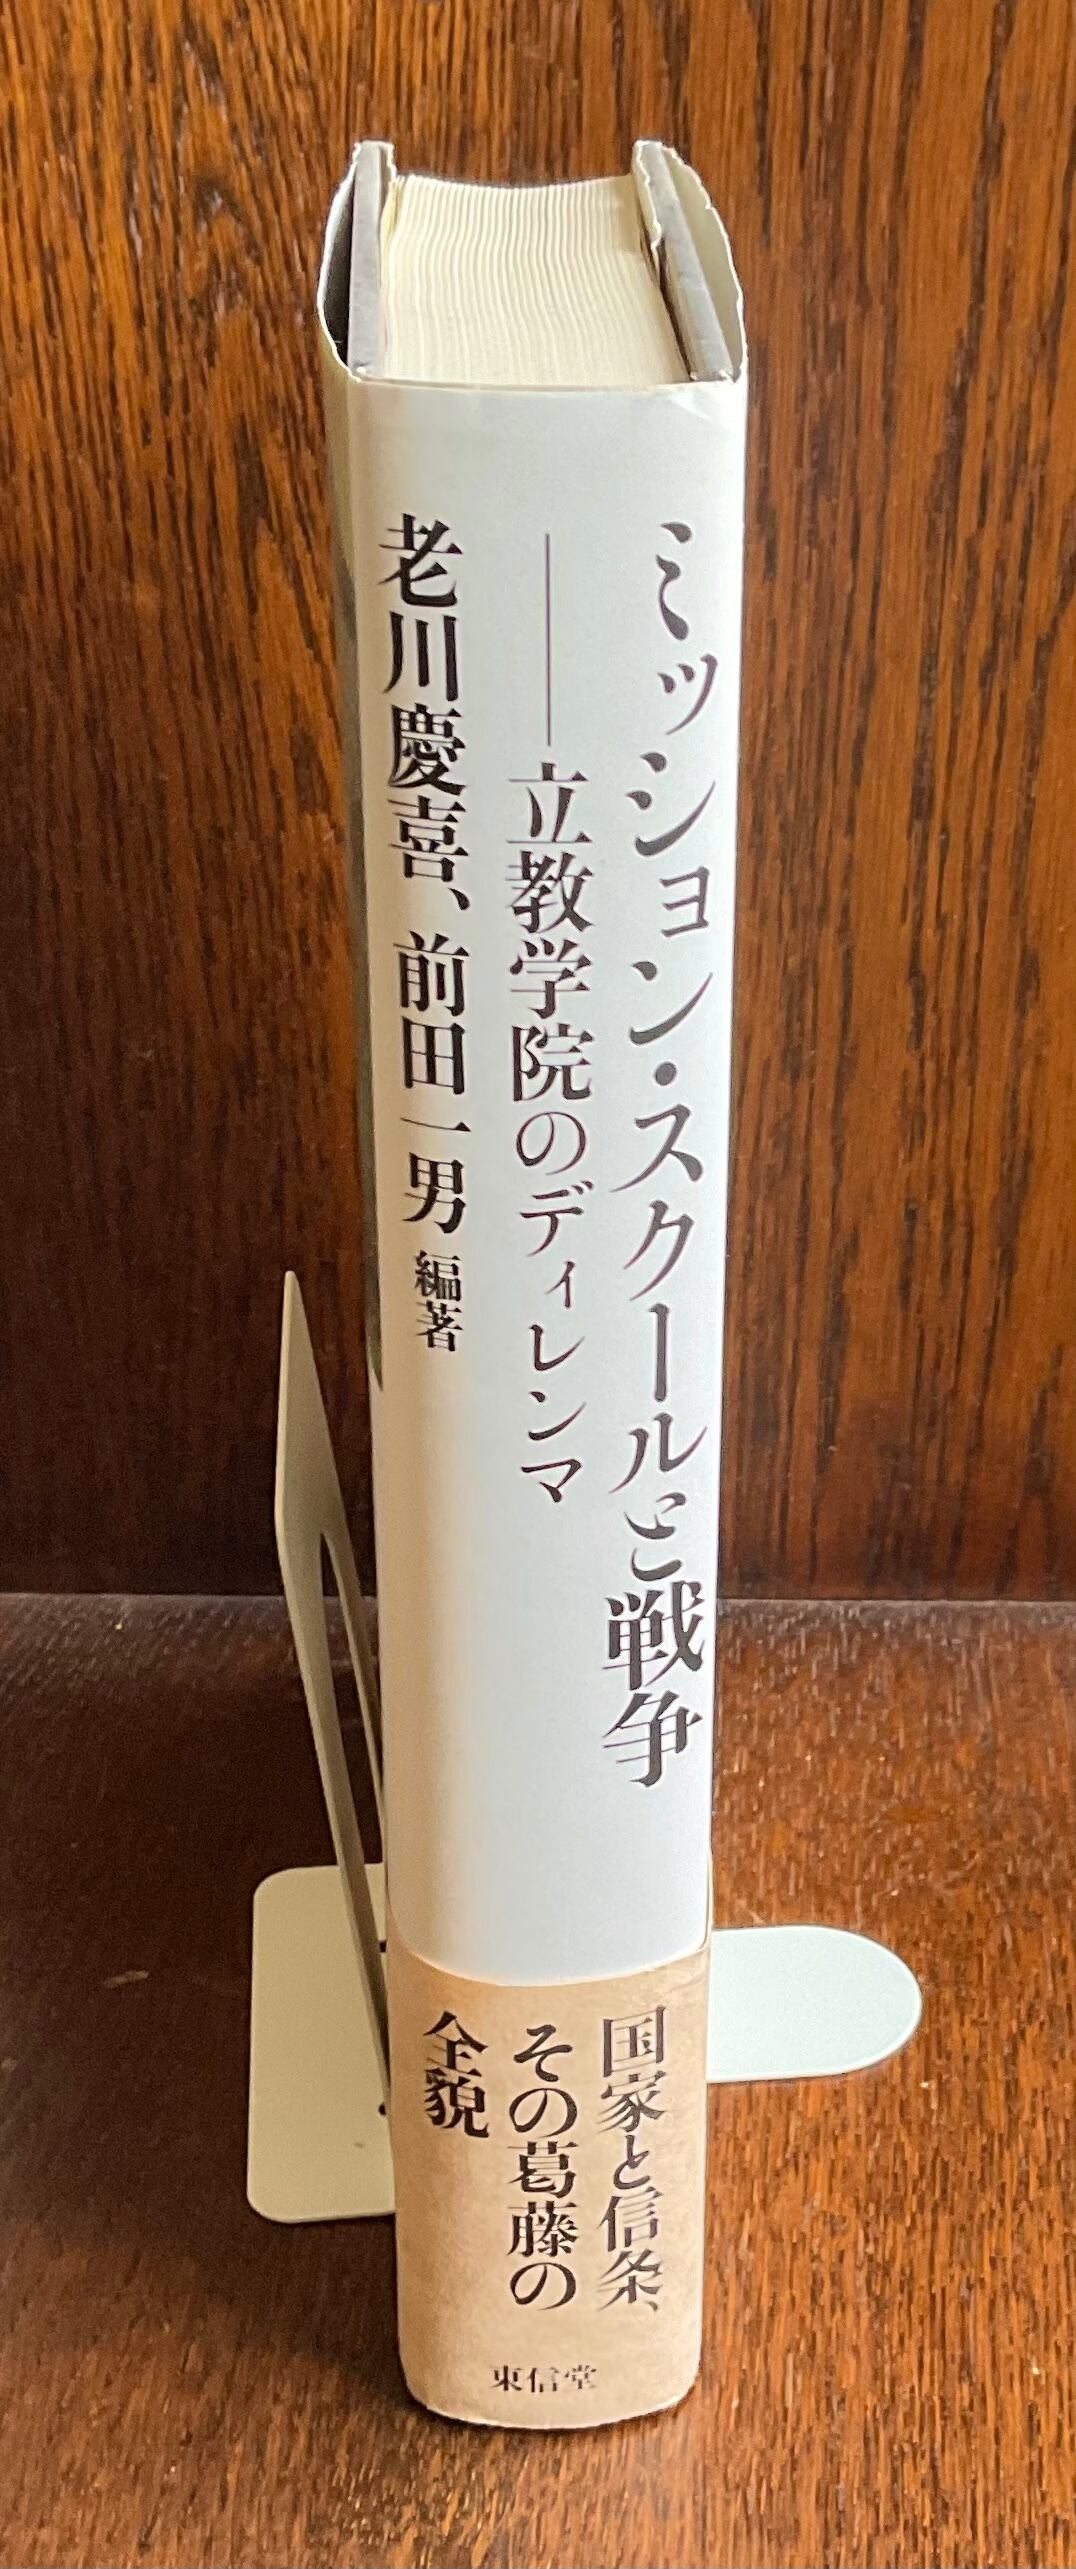 ミッション・スクールと戦争
――立教学院のディレンマ
老川慶喜、前田一男 編著
国家と信条、
その葛藤の
全貌
東信堂